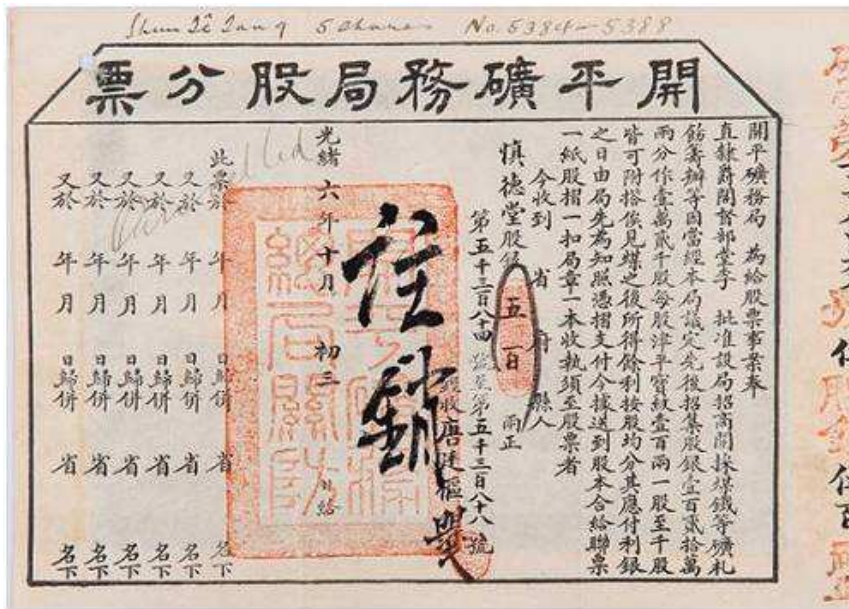 Shun Tê Tang 5 Shares No. 5384-5388
開平礦務局股分票
開平礦務局 為給股票事案奉
直隸爵閣督部堂李 批准設局招商開採煤鐵等礦札
飭籌辦等因當經本局議定先後招集股銀壹百貳拾萬
兩分作壹萬貳千股每股津平寶紋壹百兩一股至千股
皆可附搭俟見煤之後所得餘利按股均分其應付利銀
之日由局先為知照憑摺支付今據送到股本合給聯票
一紙股摺一扣局章一本收執須至股票者
今收到 省 府 縣人
慎德堂股銀 五百 兩正
第五千三百八十四 號至第五千三百八十八號
經收唐廷樞
註銷
光緒六年十月初三日給
此票於 年 月 日歸併 省 名下
又於 年 月 日歸併 省 名下
又於 年 月 日歸併 省 名下
又於 年 月 日歸併 省 名下
又於 年 月 日歸併 省 名下
又於 年 月 日歸併 省 名下